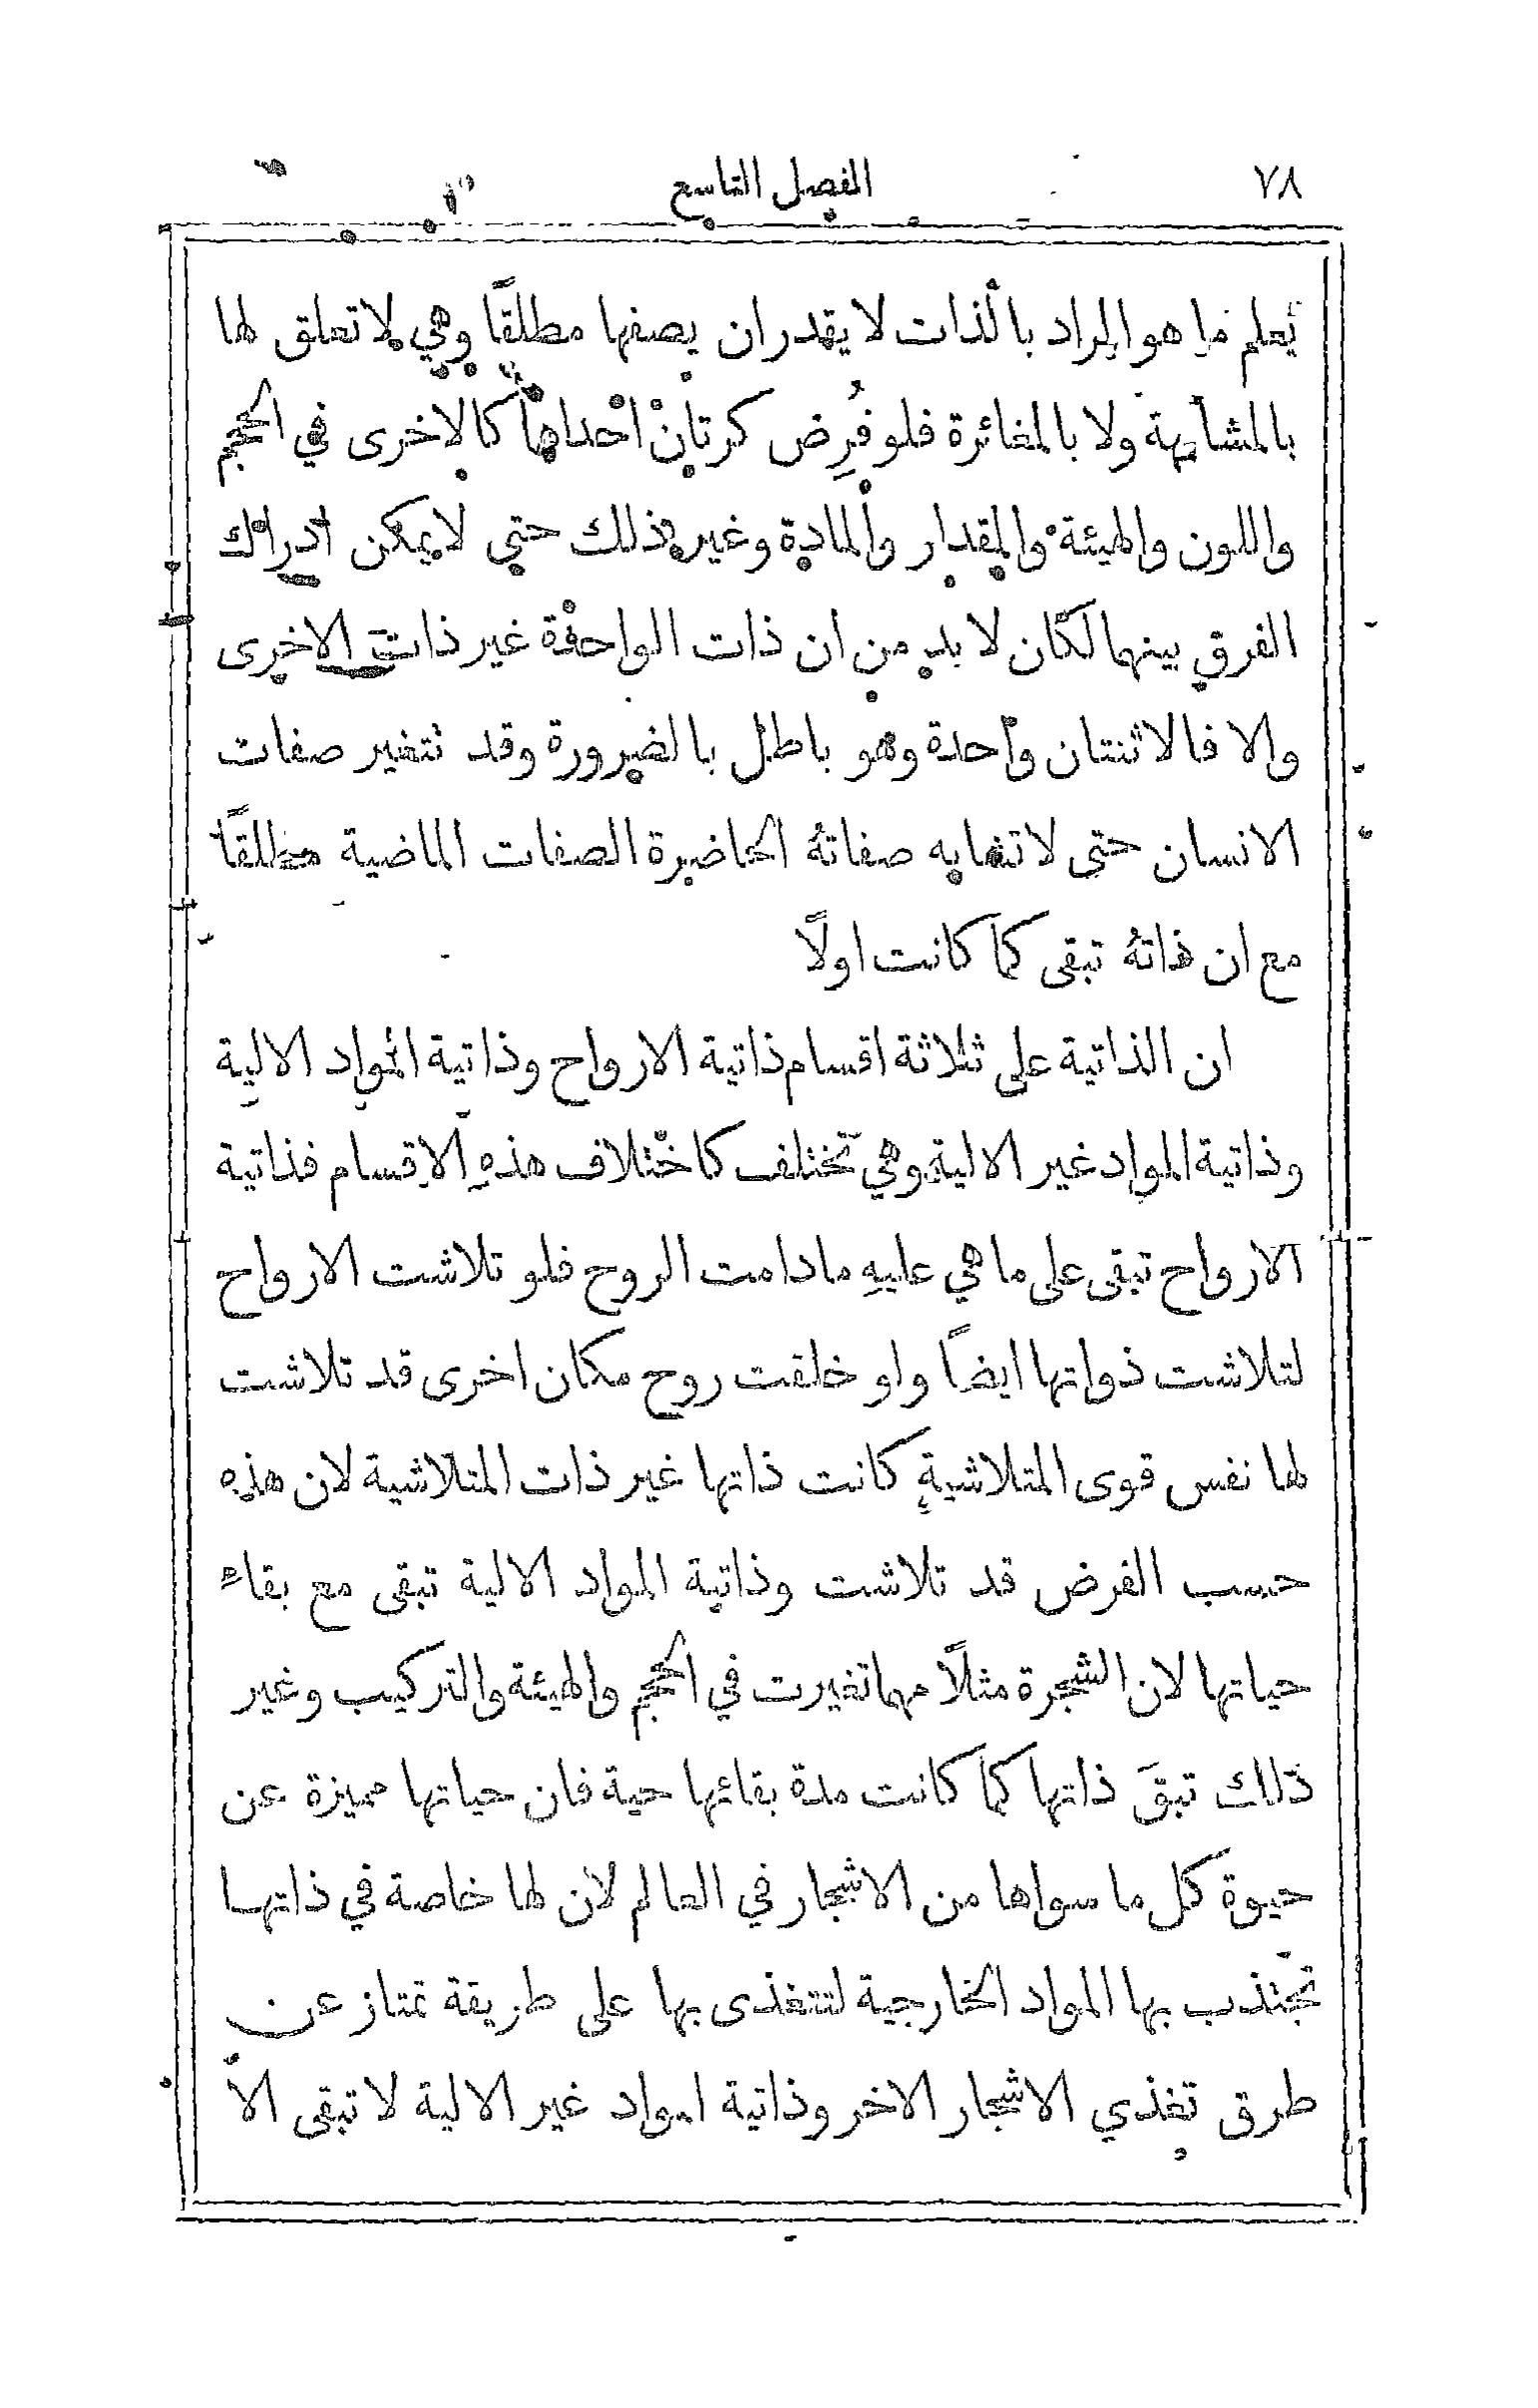 ٧٨
الفصل التاسع
يُعلم ما هو المراد بالذات لا يقدر ان يصفها مطلقًا وهي لا تعلق لها
بالمشابهة ولا بالمغائرة فلو فُرِض كرتان احداهما كالاخرى في الحجم
واللون والهيئة والمقدار والمادة وغير ذلك حتى لا يمكن ادراك
الفرق بينهما لكان لا بد من ان ذات الواحدة غير ذات الاخرى
والا فالاثنتان واحدة وهو باطل بالضرورة وقد نتغير صفات
الانسان حتى لا تشابه صفاتهُ الحاضرة الصفات الماضية مطلقًا
مع ان ذاتهُ تبقى كما كانت اولًا
ان الذاتية على ثلاثة اقسام ذاتية الارواح وذاتية المواد الالية
وذاتية المواد غير الالية وهي تختلف كاختلاف هذهِ الاقسام فذاتية
الارواح تبقى على ما هي عليهِ ما دامت الروح فلو تلاشت الارواح
لتلاشت ذواتها ايضاً ولو خلقت روح مكان اخرى قد تلاشت
لها نفس قوى المتلاشية كانت ذاتها غير ذات المتلاشية لان هذه
حسب الفرض قد تلاشت وذاتية المواد الالية تبقى مع بقاءً
حياتها لان الشجرة مثلًا مهما تغيرت في الحجم والهيئة والتركيب وغير
ذلك تبقَ ذاتها كما كانت مدة بقائها حية فان حياتها مميزة عن
حيوة كل ما سواها من الاشجار في العالم لان لها خاصة في ذاتها
تجتذب بها المواد الخارجية لتتغذى بها على طريقة تمتاز عن
طرق تغذي الاشجار الاخر وذاتية المواد غير الالية لا تبقى الاّ